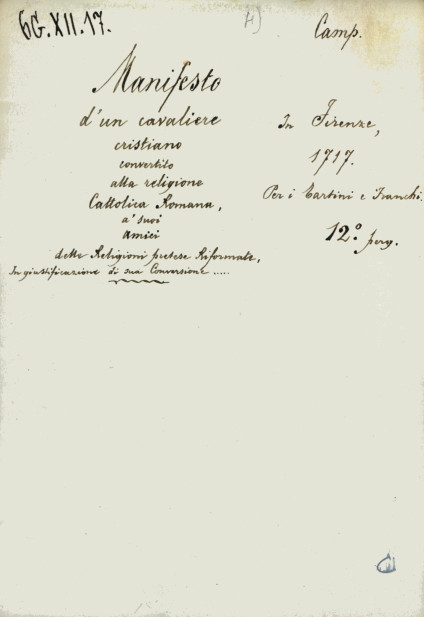 6G.XII.17.
A)
Camp.
Manifesto
d'un cavaliere
cristiano
convertito
alla religione
Cattolica Romana,
a' suoi
amici
delle Religioni pretese Riformate,
In giustificazione di sua Conversione .....
In Firenze,
1717.
Per i Tartini e Franchi.
12.° perg.